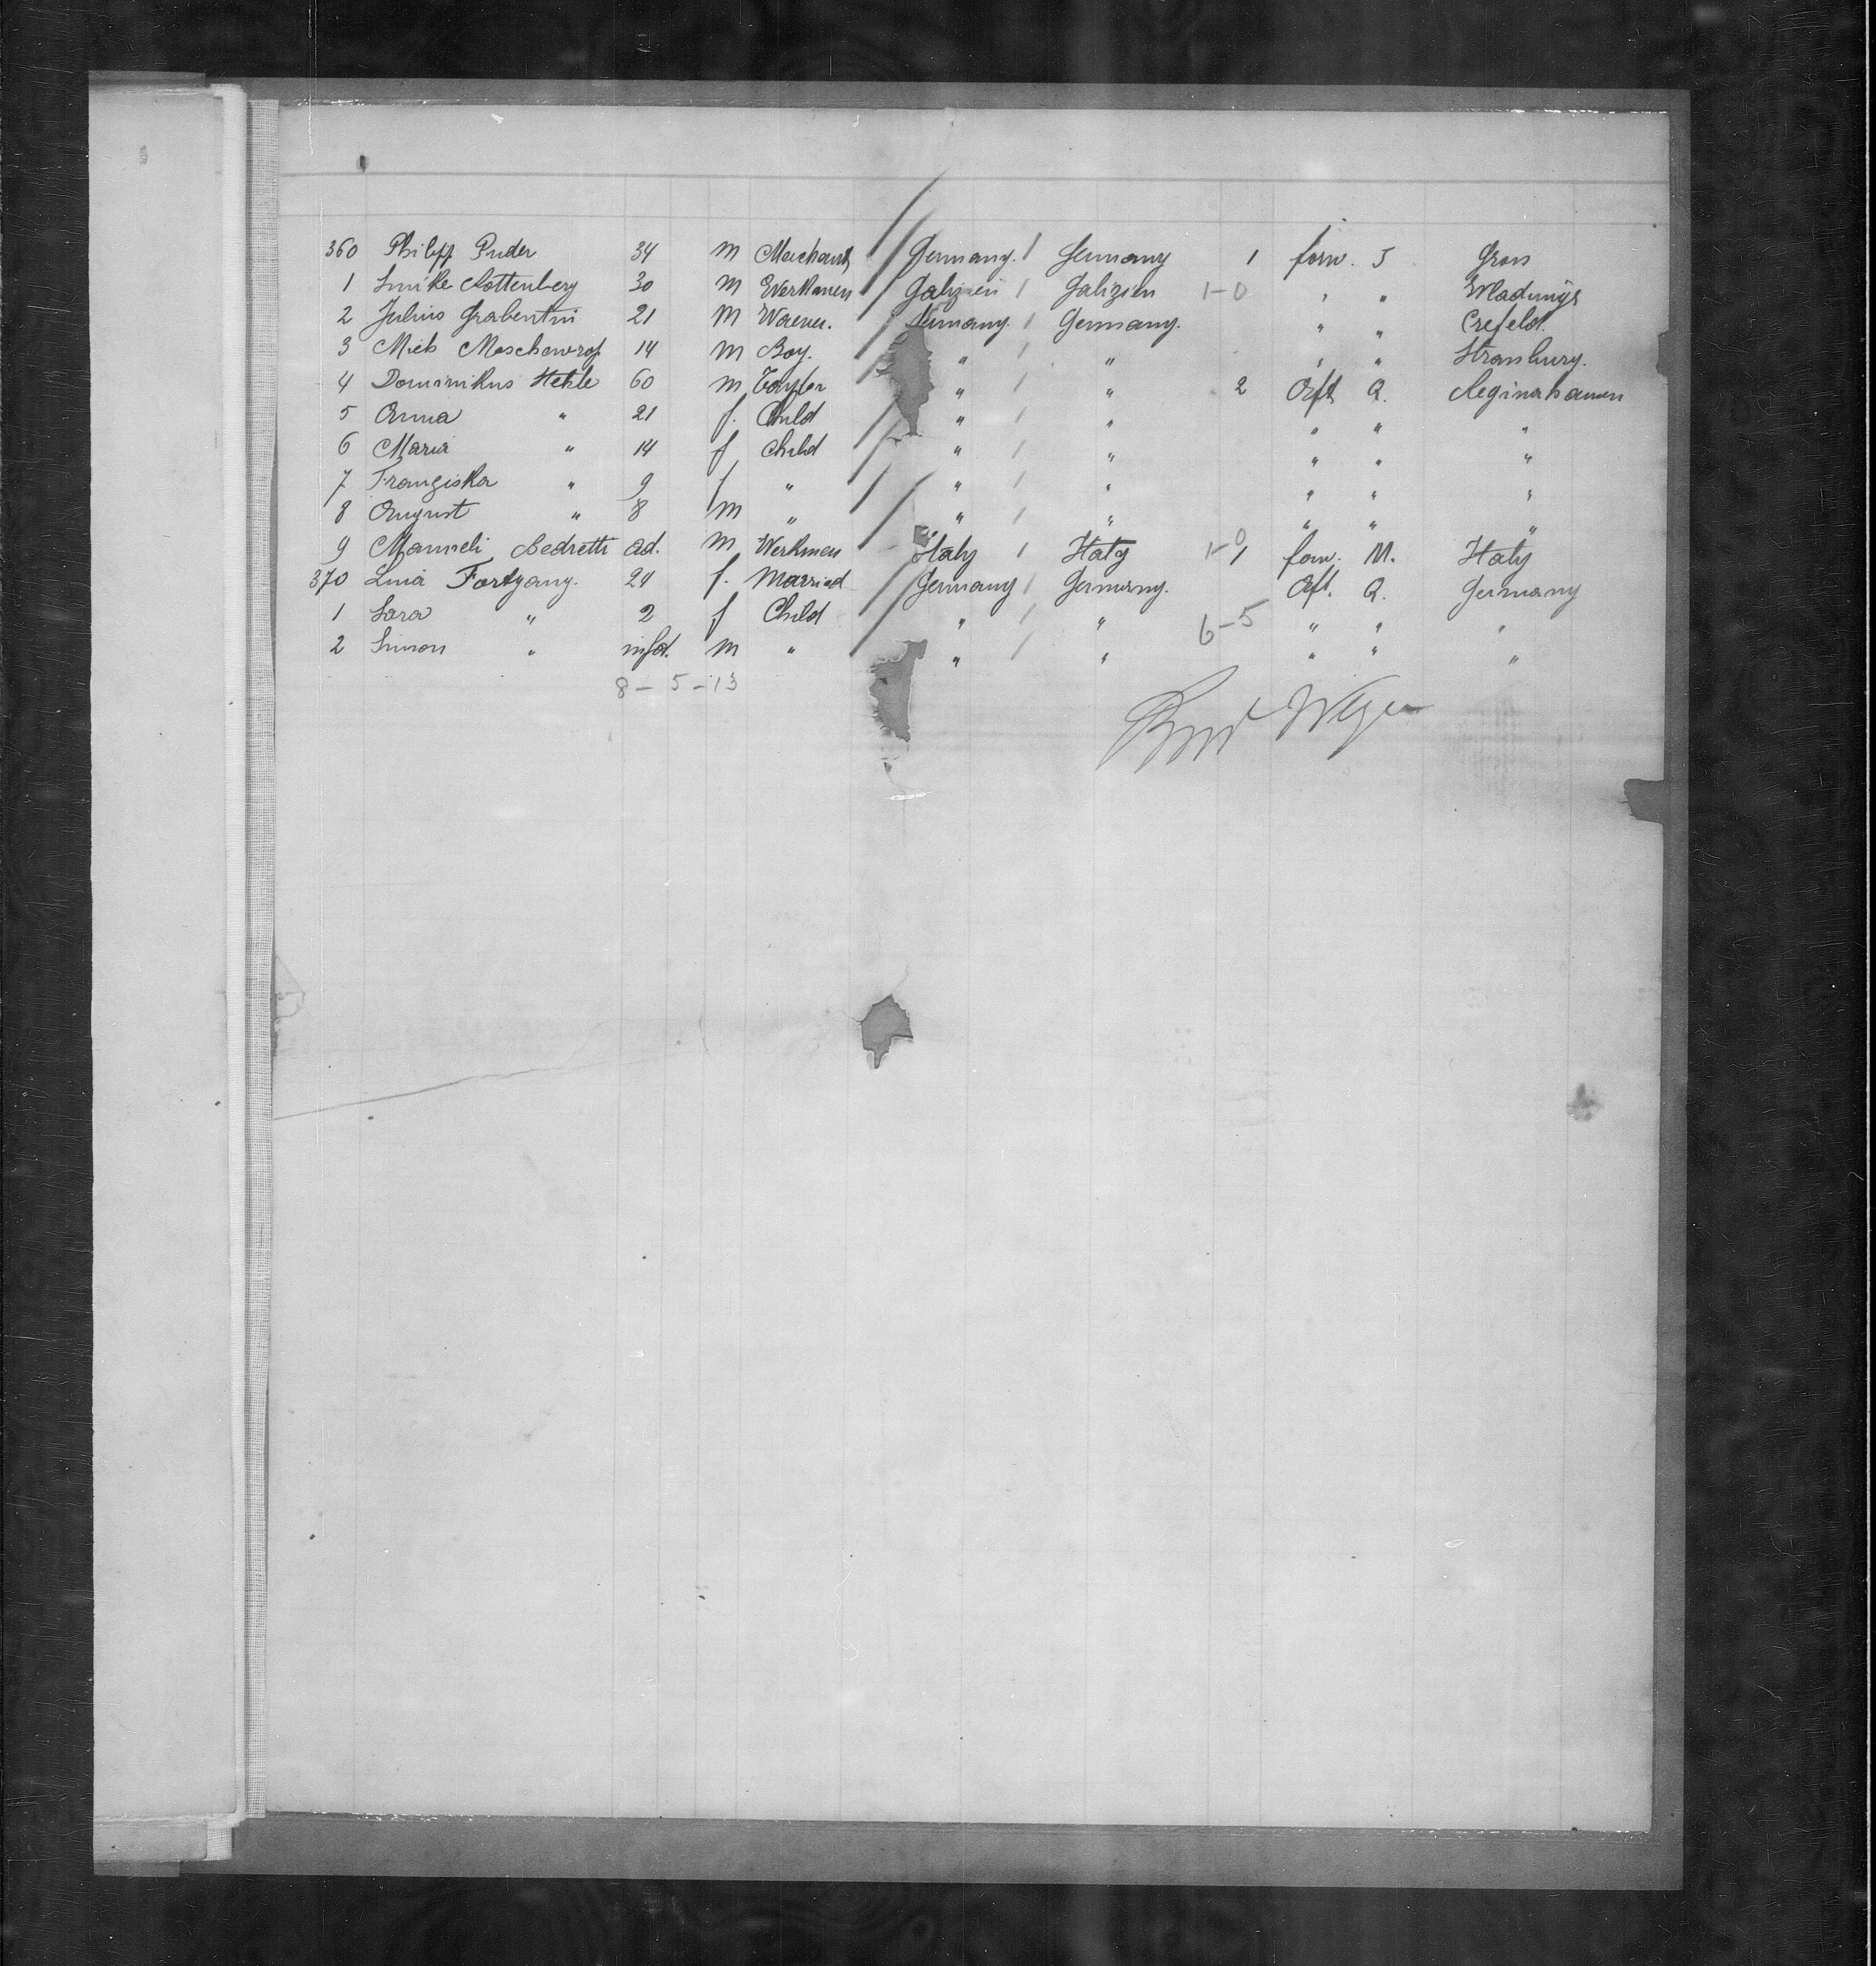 360 Philipp Puder 34 m Merchant / Germany. / Germany 1 forw. J Grosz
1 Rottenberg 30 m Werkmen / Galizien / Galizien 1-0 " "
2 Julius Grabentin 21 M / Germany. / Germany. " " Crefeld.
3 14 m Boy. " / " " " Strassburg.
4 Dominikus Hehle 60 m / " / " 2 Aft Q.
5 Anna " 21 f. Child / " / " " " "
6 Maria " 14 f Child / " / " " " "
7 Franziska " 9 f " / " / " " " "
8 August " 8 m " / " / " " " "
9 Bedretti ad. m Werkmen / Italy / Italy 1-0 1 forw. M. Italy
370 Lina Fortgang. 24 f. Married / Germany / Germany. Aft. Q. Germany
1 Sara " 2 f Child / " / " 6-5 " " "
2 Simon " infd. m " / " / " " " "
8 - 5 - 13